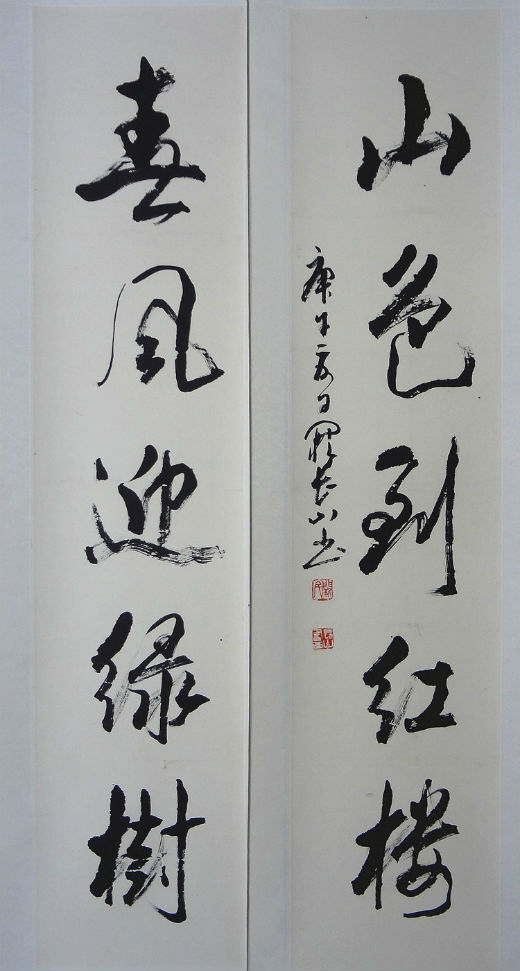 山色到红楼
庚午夏日
春风迎绿樹